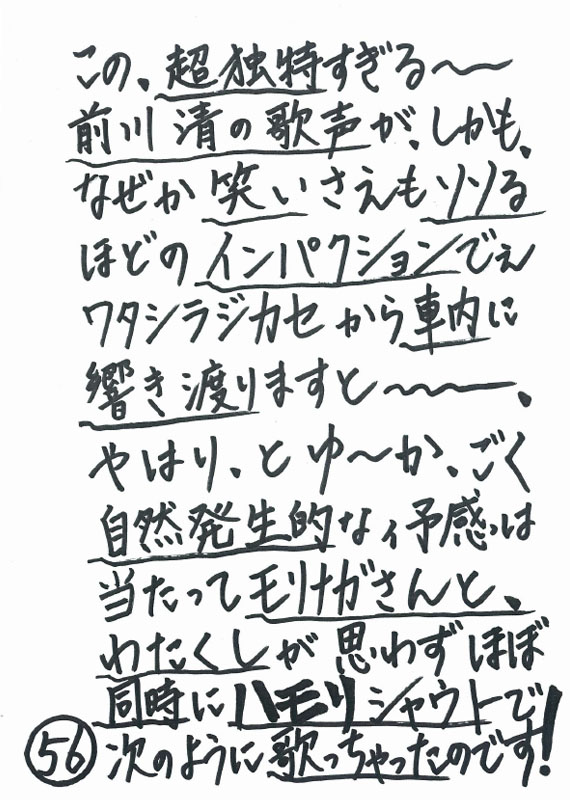 この、超独特すぎる〜〜
前川清の歌声が、しかも、
なぜか笑いさえもソソる
ほどのインパクションでぇ
ワタシラジカセから車内に
響き渡りますと〜〜〜、
やはり、とゆ〜か、ごく
自然発生的な〝予感〟は
当たってモリナガさんと、
わたくしが思わずほぼ
同時にハモリシャウトで
56 次のように歌っちゃったのです!